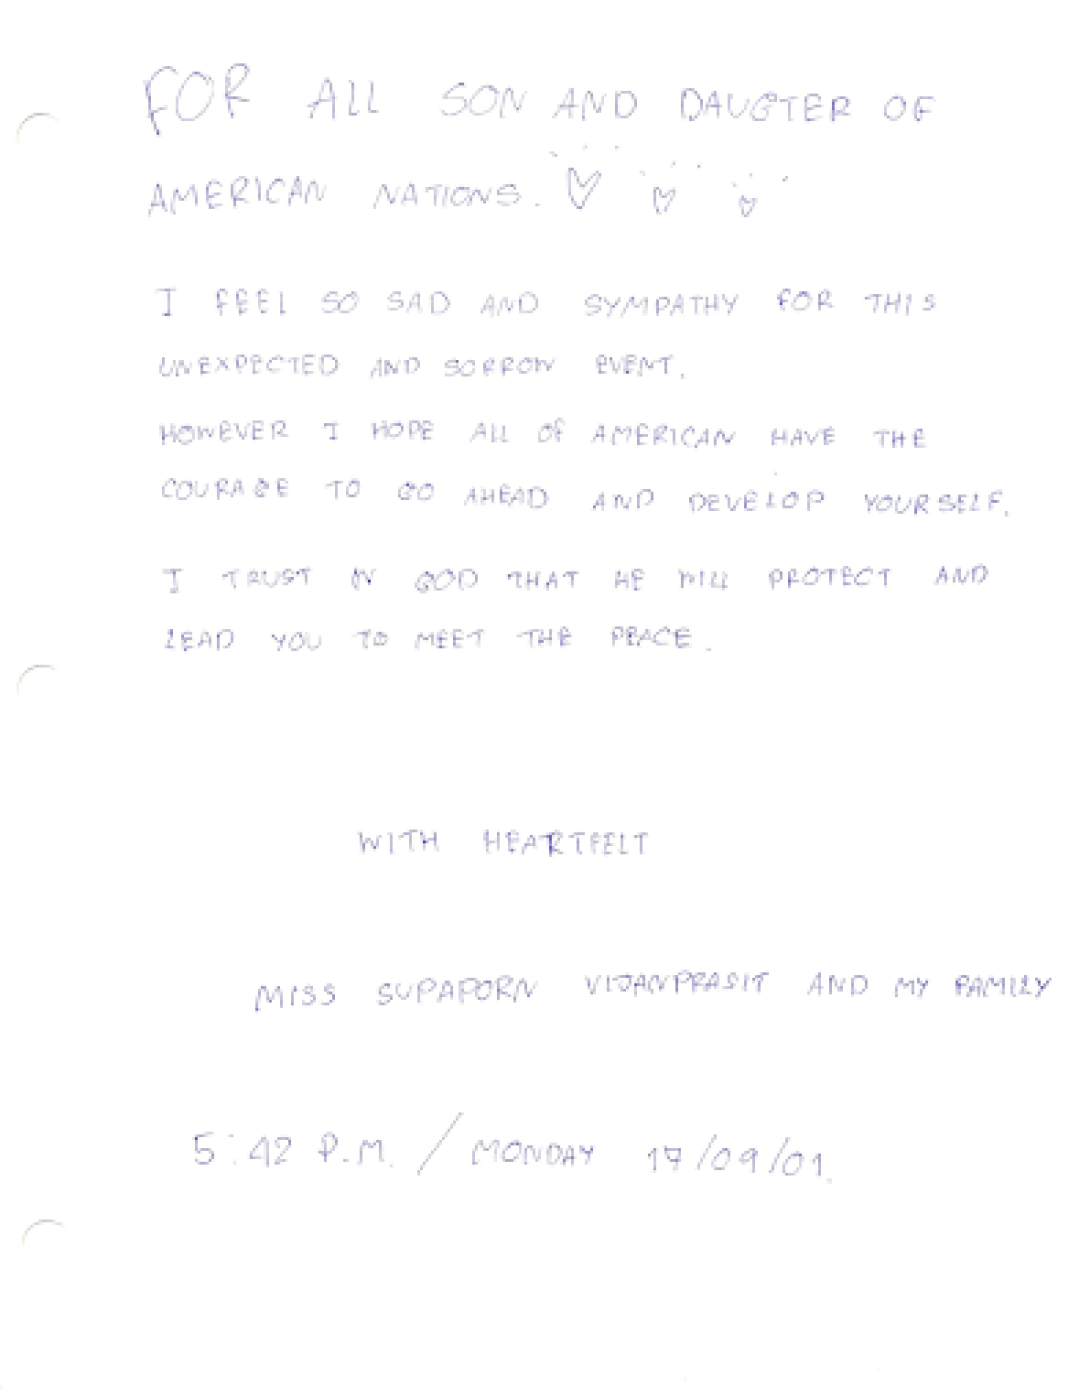 FOR ALL SON AND DAUGTER OF
AMERICAN NATIONS.
I FEEL SO SAD AND SYMPATHY FOR THIS
UNEXPECTED AND SORROW EVENT.
HOWEVER I HOPE ALL OF AMERICAN HAVE THE
COURAGE TO GO AHEAD AND DEVELOP YOURSELF.
I TRUST IN GOD THAT HE WILL PROTECT AND
LEAD YOU TO MEET THE PEACE.
WITH HEARTFELT
MISS SUPAPORN VIJANPRASIT AND MY FAMILY
5:42 P.M. / MONDAY 17/09/01.